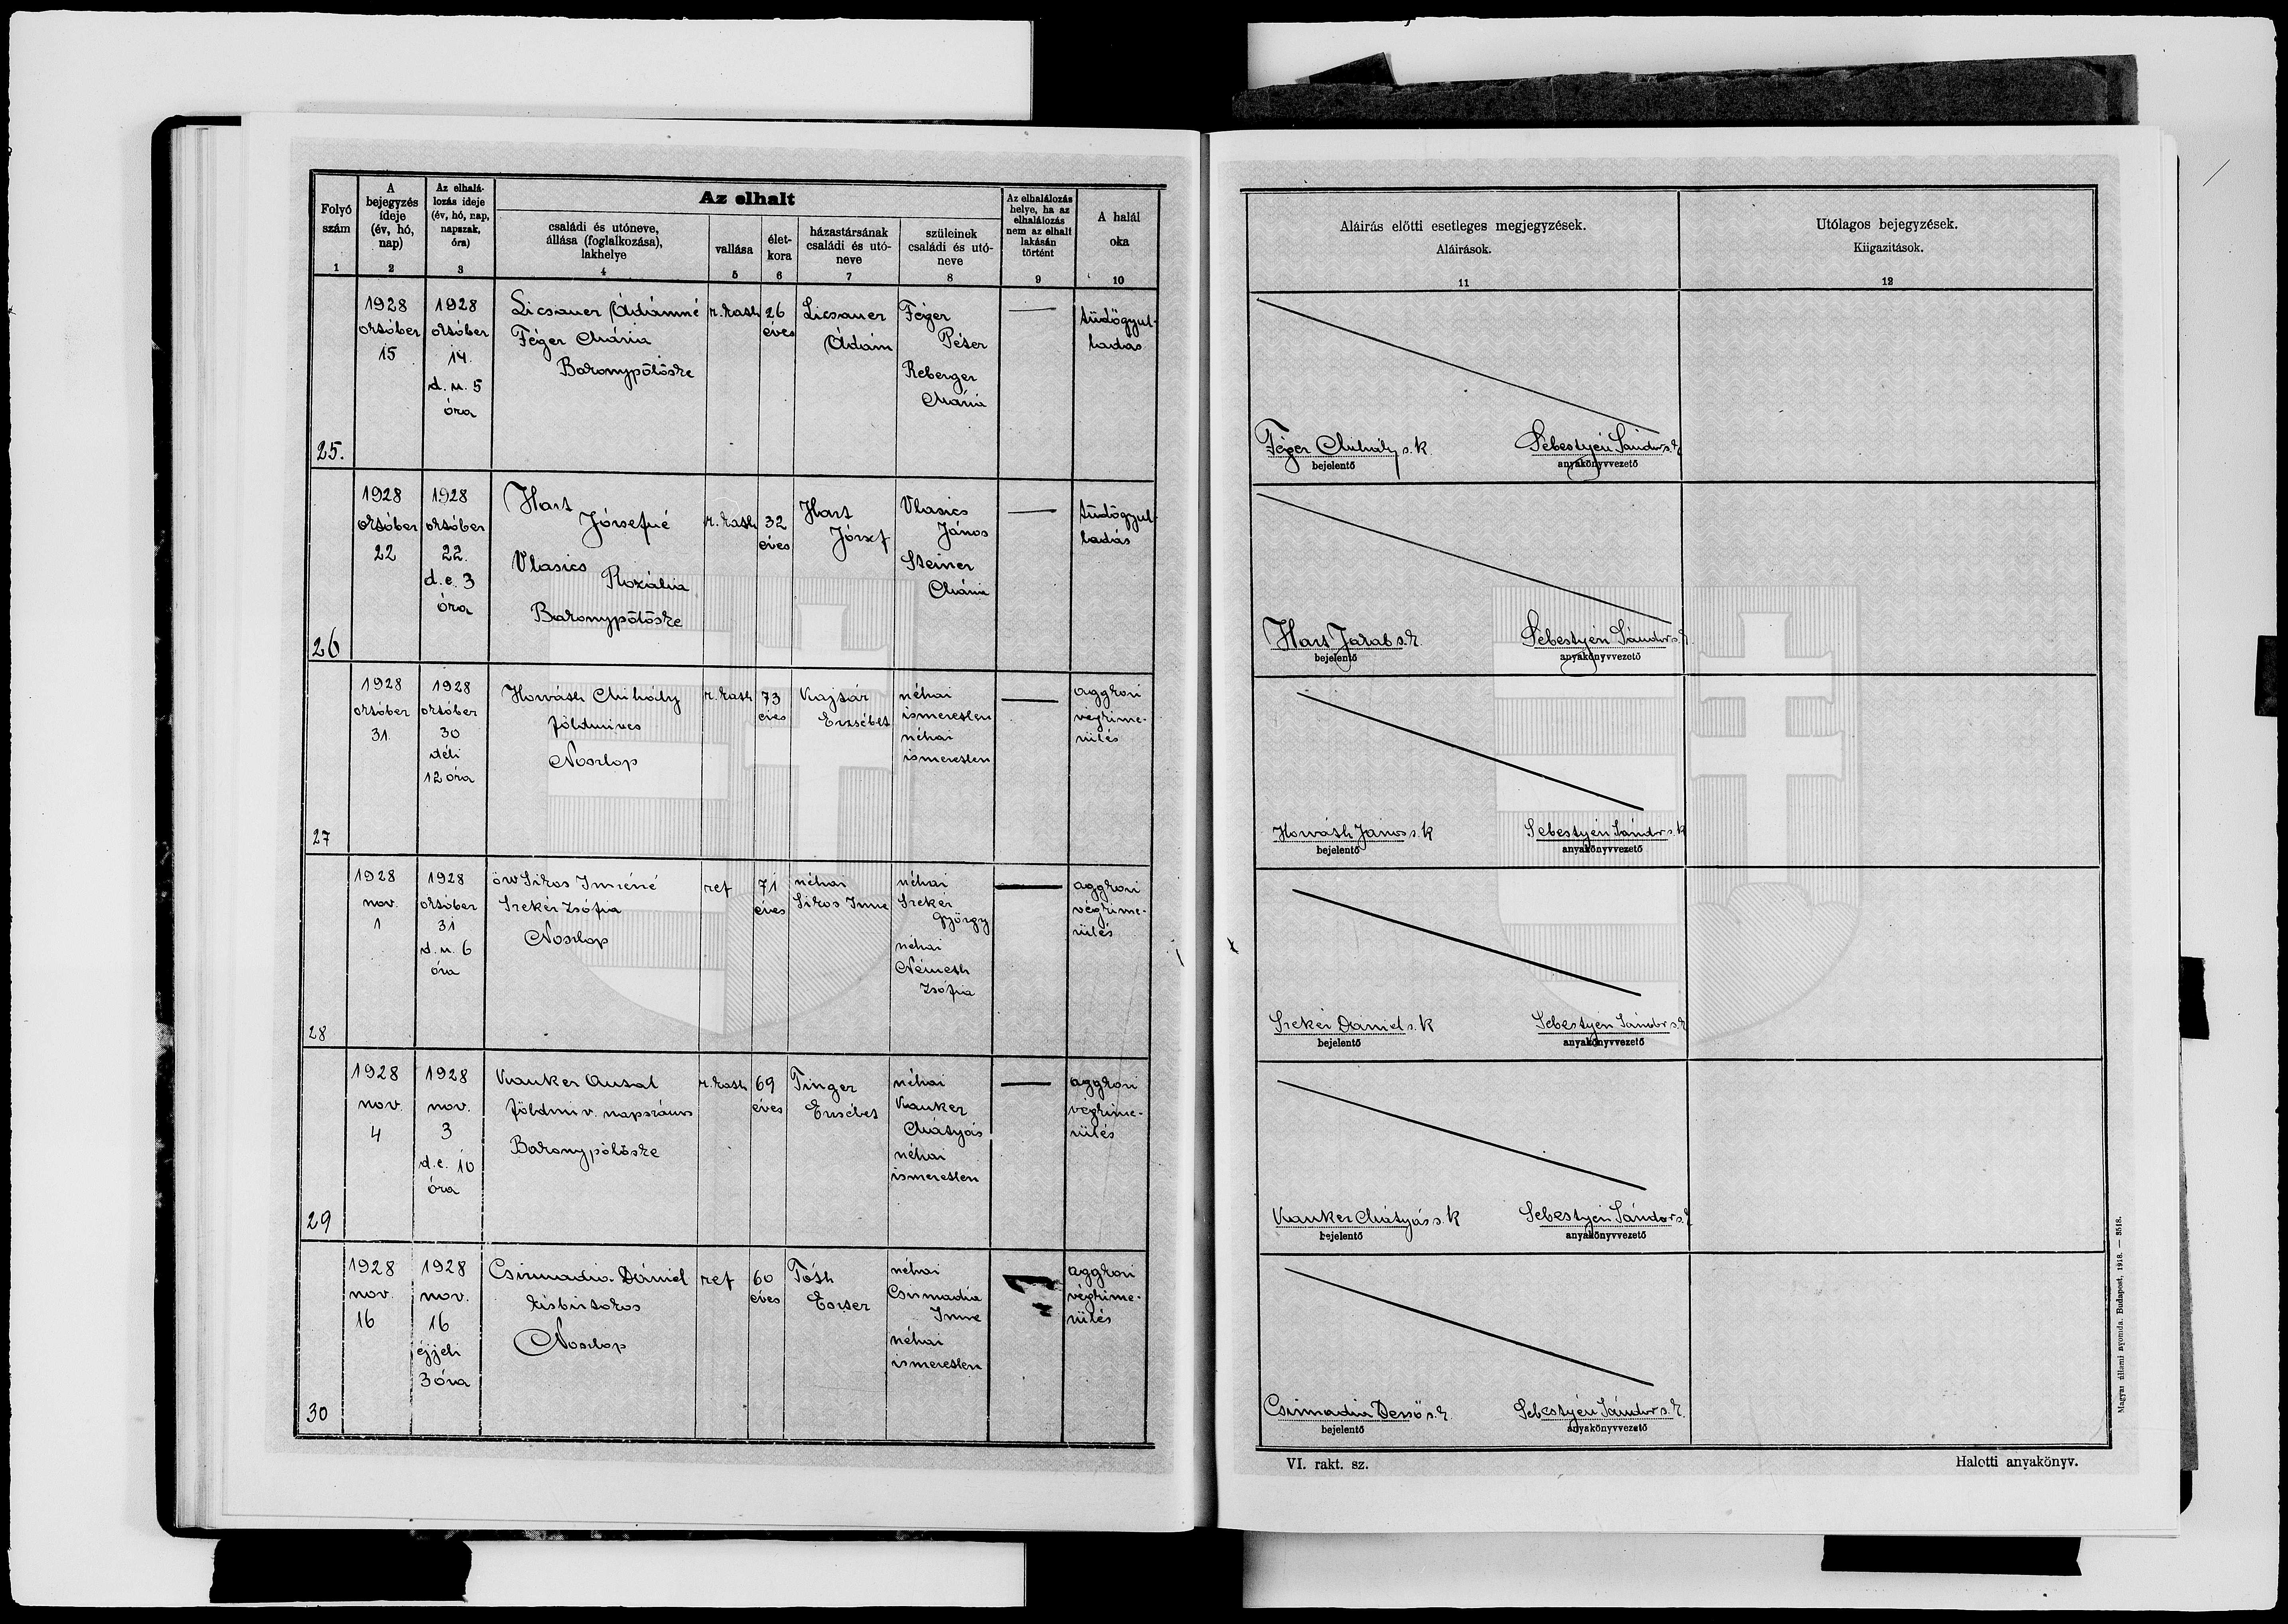 Folyó szám
1
A bejegyzés ideje (év, hó, nap)
2
Az elhalálozás ideje (év, hó, nap, napszak, óra)
3
Az elhalt
családi és utóneve, állása (foglalkozása), lakhelye
4
vallása
5
életkora
6
házastársának családi és utóneve
7
szüleinek családi és utóneve
8
Az elhalálozás helye, ha az elhalálozás nem az elhalt lakásán történt
9
A halál oka
10
Aláírás előtti esetleges megjegyzések.
Aláírások.
11
Utólagos bejegyzések.
Kiigazítások.
12
25.
1928
október
15
1928
október
14.
d. u. 5
óra
Licsauer Ádámné
Féger Mária
Bakonypölöske
r. kath
26
éves
Licsauer
Ádám
Féger
Péter
Reberger
Mária
tüdőgyul-
ladás
Féger Mihály s. k
bejelentő
Sebestyén Sándor s. k
anyakönyvvezető
26
1928
október
22
1928
október
22.
d. e. 3
óra
Hart
Józsefné
Vlasics
Rozália
Bakonypölöske
r. kath
32
éves
Hart
József
Vlasics
János
Steiner
Mária
tüdőgyul-
ladás
Hart Jakab s. k.
bejelentő
Sebestyén Sándor s. k.
anyakönyvvezető
27
1928
október
31.
1928
október
30
déli
12 óra
Horváth Mihály
földmives
Noszlop
r. kath
73
éves
Kajsár
Erzsébet
néhai
ismeretlen
néhai
ismeretlen
aggkori
végkime-
rülés
Horváth János s. k
bejelentő
Sebestyén Sándor s. k
anyakönyvvezető
28
1928
nov.
1
1928
október
31
d. u. 6
óra
özv Sikos Imréné
Szekér Zsófia
Noszlop
ref
71
éves
néhai
Sikos Imre
néhai
Szekér
György
néhai
Németh
Zsófia
aggkori
végkime-
rülés
Szekér Dániel s. k
bejelentő
Sebestyén Sándor s. k
anyakönyvvezető
29
1928
nov.
4
1928
nov.
3
d. e. 10
óra
Kauker Antal
földmiv. napszámos
Bakonypölöske
r. kath
69
éves
Tinger
Erzsébet
néhai
Kauker
Mátyás
néhai
ismeretlen
aggkori
végkime-
rülés
Kauker Mátyás s. k
bejelentő
Sebestyén Sándor s. k
anyakönyvvezető
30
1928
nov.
16
1928
nov.
16
éjjeli
3 óra
Csizmadia Dániel
kisbirtokos
Noszlop
ref
60
éves
Tóth
Eszter
néhai
Csizmadia
Imre
néhai
ismeretlen
aggkori
végkime-
rülés
Csizmadia Dezső s. k.
bejelentő
Sebestyén Sándor s. k.
anyakönyvvezető
VI. rakt. sz.
Halotti anyakönyv.
Magyar állami nyomda. Budapest, 1918. — 3518.